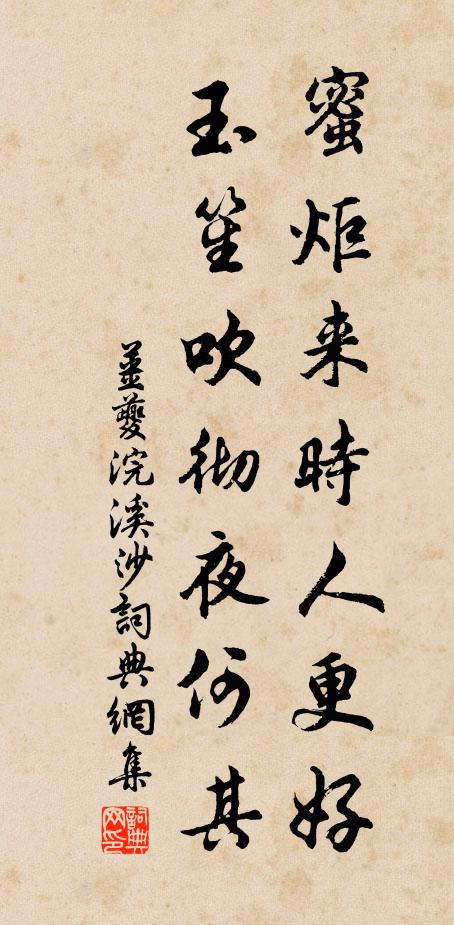 蜜炬来時人更好
玉笙吹彻夜何其
姜夔浣溪沙詞典網集
詞典网印